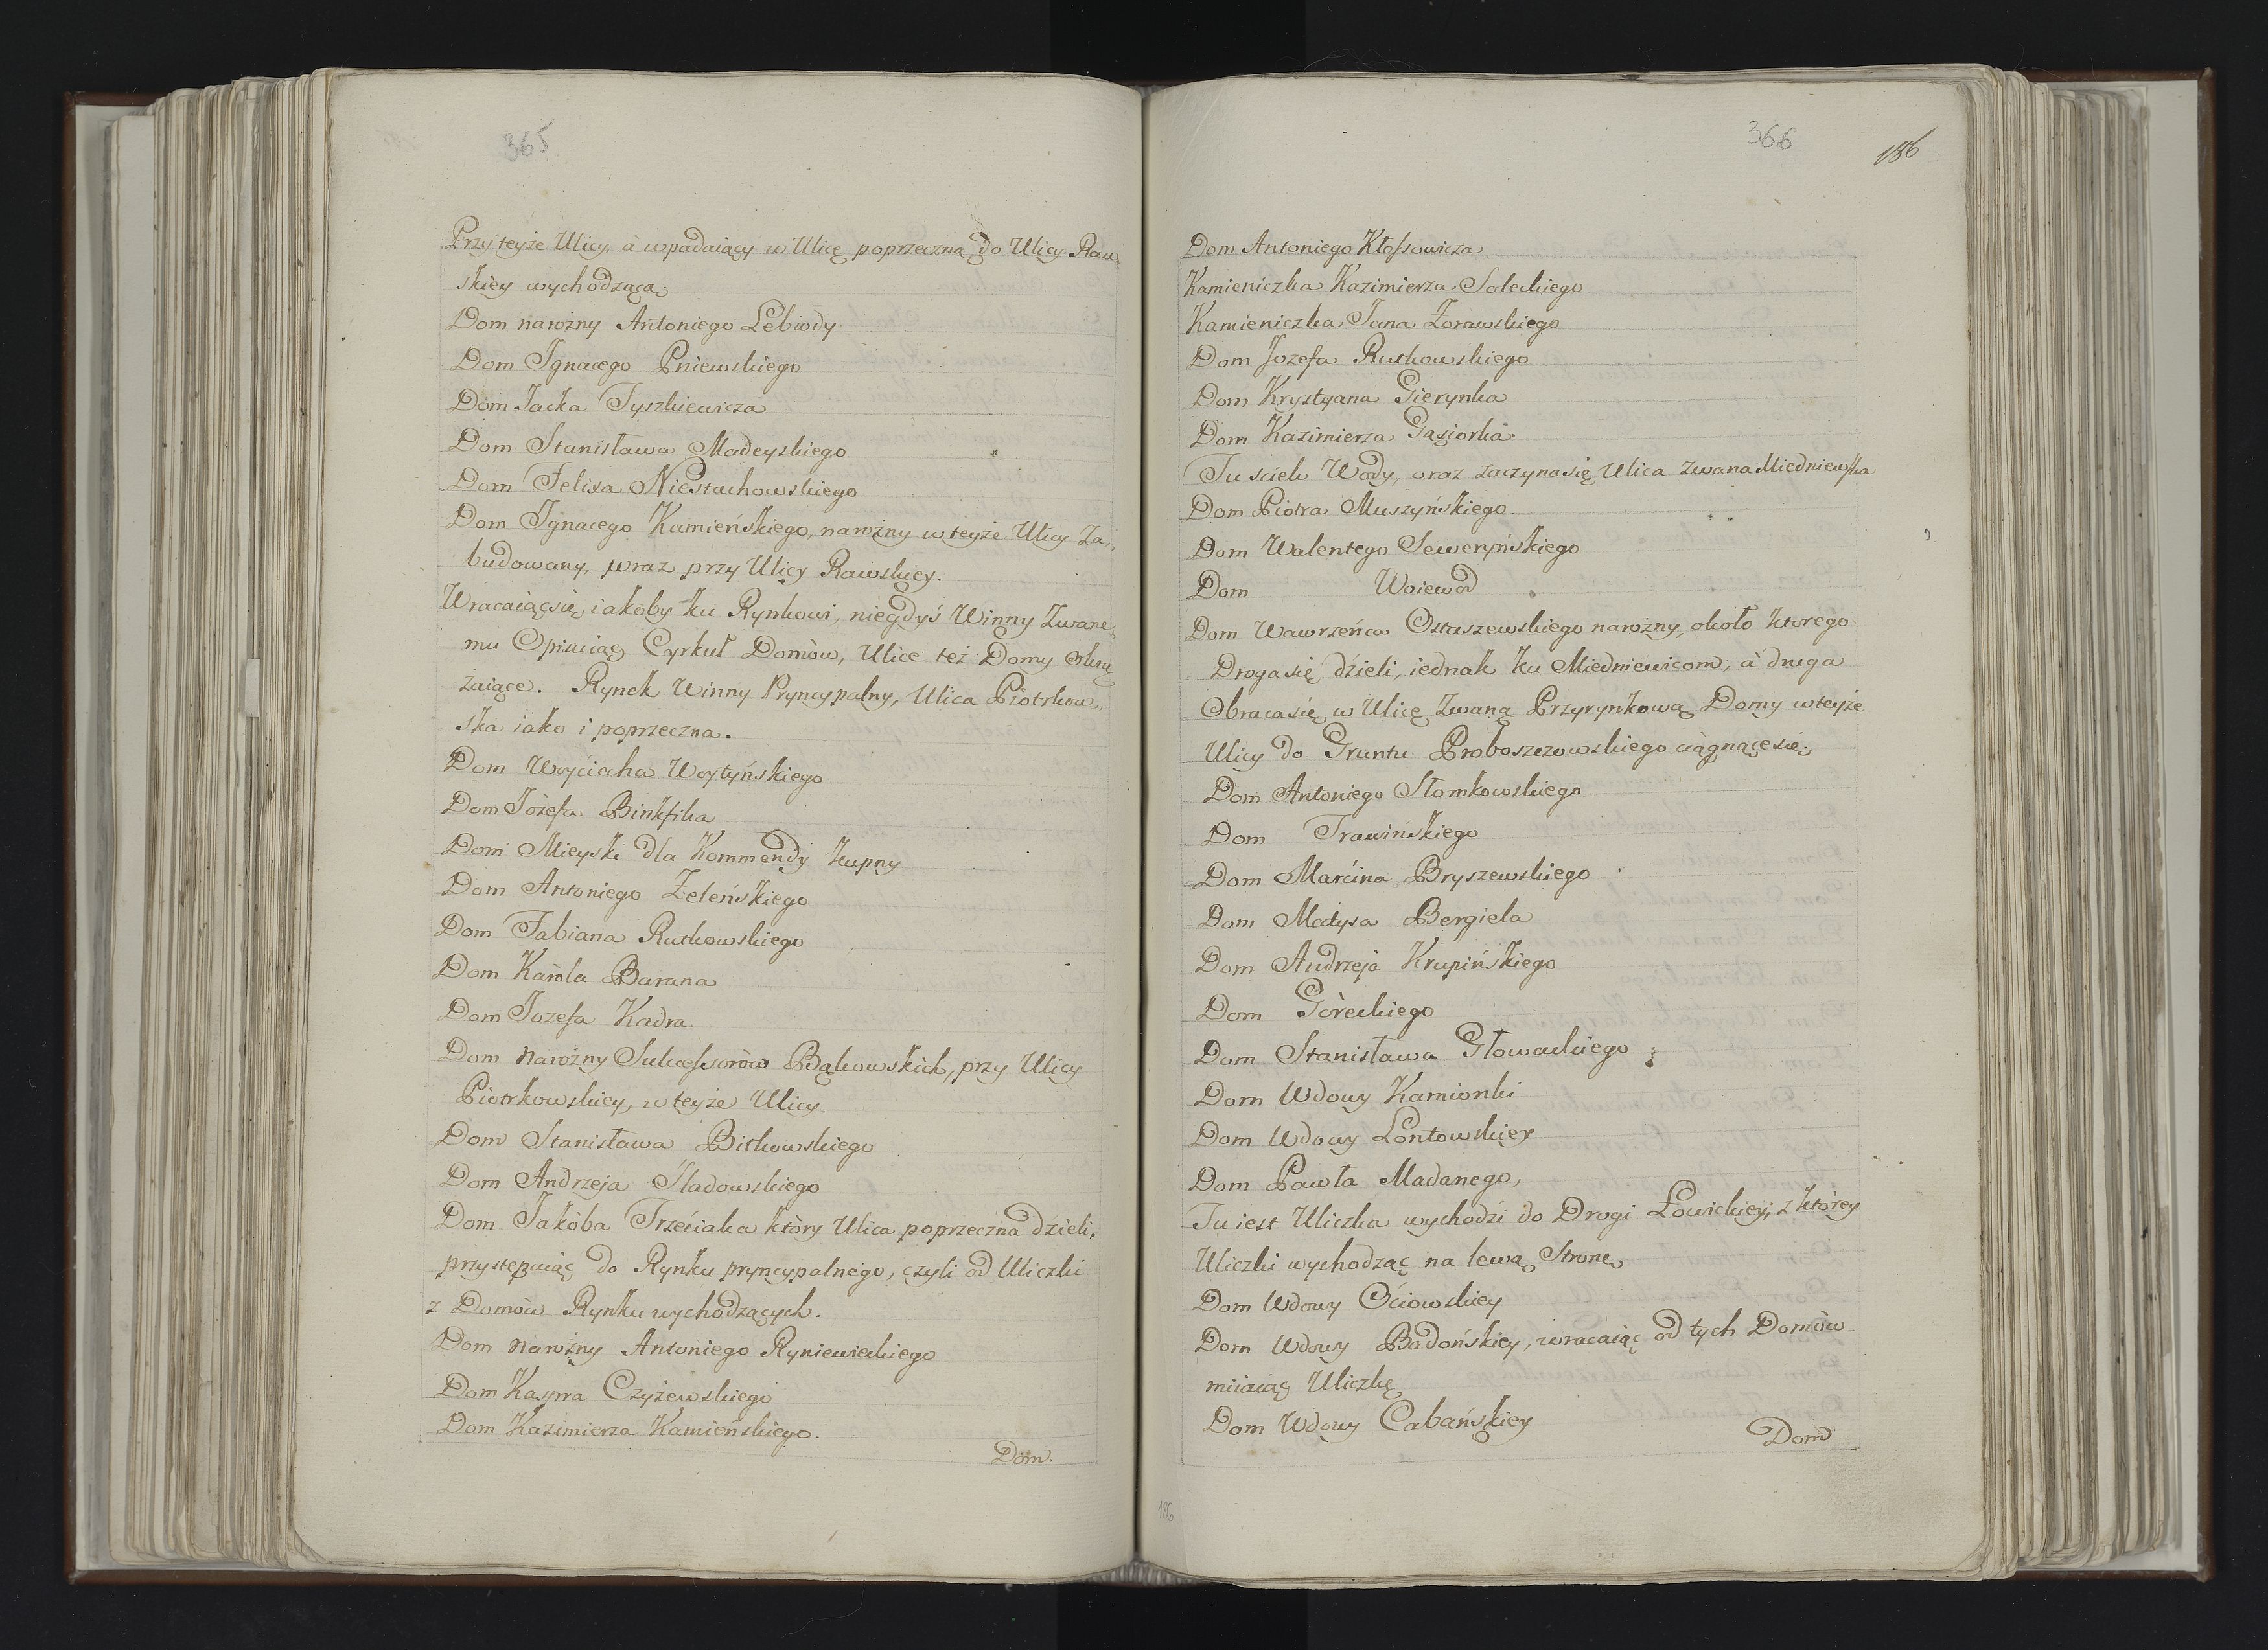 365
Przy teyże Ulicy, à wpadaiący w Ulicę poprzeczną do Ulicy Raw
skiey wychodzącą
Dom narożny Antoniego Lebiody
Dom Ignacego Pniewskiego
Dom Jacka Tyszkiewicza
Dom Stanisława Madeyskiego
Dom Felixa Niestachowskiego
Dom Ignacego Kamieńskiego, narożny w teyże Ulicy Za,
budowany, wraz przy Ulicy Rawskiey.
Wracaiąc się iakoby ku Rynkowi, niegdyś Winny Zwane,
mu Opisuiąc Cyrkuł Domòw, Ulice też Domy Okrą
żaiące. Rynek Winny Pryncypalny, Ulica Piotrkow,,
ska iako i poprzeczna.
Dom Woyciecha Woytyńskiego
Dom Józefa
Dom Mieyski dla Kommendy kupny
Dom Antoniego Zeleńskiego
Dom Fabiana Rutkowskiego
Dom Karòla Barana
Dom Jozefa Kadra
Dom Narożny Sukcessoròw Bąkowskich, przy Ulicy
Piotrkowskiey, w teyże Ulicy.
Dom Stanisława Bitkowskiego
Dom Andrzeja Śladowskiego
Dom Jakòba Trzeciaka ktòry Ulica poprzeczna dzieli.
przystępuiąc do Rynku pryncypalnego, czyli od Uliczki
z Domòw Rynku wychodzących.
Dom Narożny Antoniego Ryniewieckiego
Dom Kaspra Czyżewskiego
Dom Kazimierza Kamieńskiego.
Dom.
366
186
Dom Antoniego Kłossowicza
Kamieniczka Kazimierza Soleckiego
Kamieniczka Jana Zorawskiego
Dom Jozefa Rutkowskiego
Dom Krystyana Gierynka
Dom Kazimierza Gąsiorka
Tu sciek Wody, oraz zaczyna się Ulica zwana Miedniewska
Dom Piotra Muszyńskiego
Dom Walentego Seweryńskiego
Dom Woiewod
Dom Wawrzeńca Ostaszewskiego narożny, około ktorego
Droga się dźieli, iednak ku Miedniewicom, à druga
Obraca się, w Ulicę Zwaną Przyrynkową Domy w teyże
Ulicy do Gruntu Proboszczowskiego ciągnące się
Dom Antoniego Słomkowskiego
Dom Trawińskiego
Dom Marćina Bryszewskiego
Dom Matysa Bergiela
Dom Andrzeja Krupińskiego
Dom Gòreckiego
Dom Stanisława Głowackiego
Dom Wdowy Kamionki
Dom Wdowy Lontowskiey
Dom Pawła Madanego,
Tu iest Uliczka wychodzi do Drogi Łowickiey, z ktòrey
Uliczki wychodząc na lewą Stronę
Dom Wdowy Ociowskiey
Dom Wdowy Badońskiey, wracaiąc od tych Domòw
miiaiąc Uliczkę
Dom Wdowy Cabańskiey
Dom
186